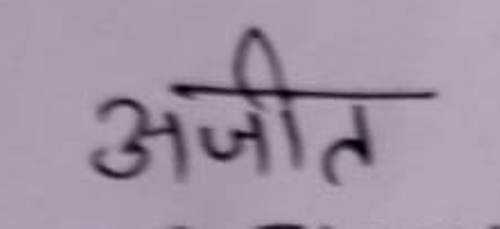 अजीत